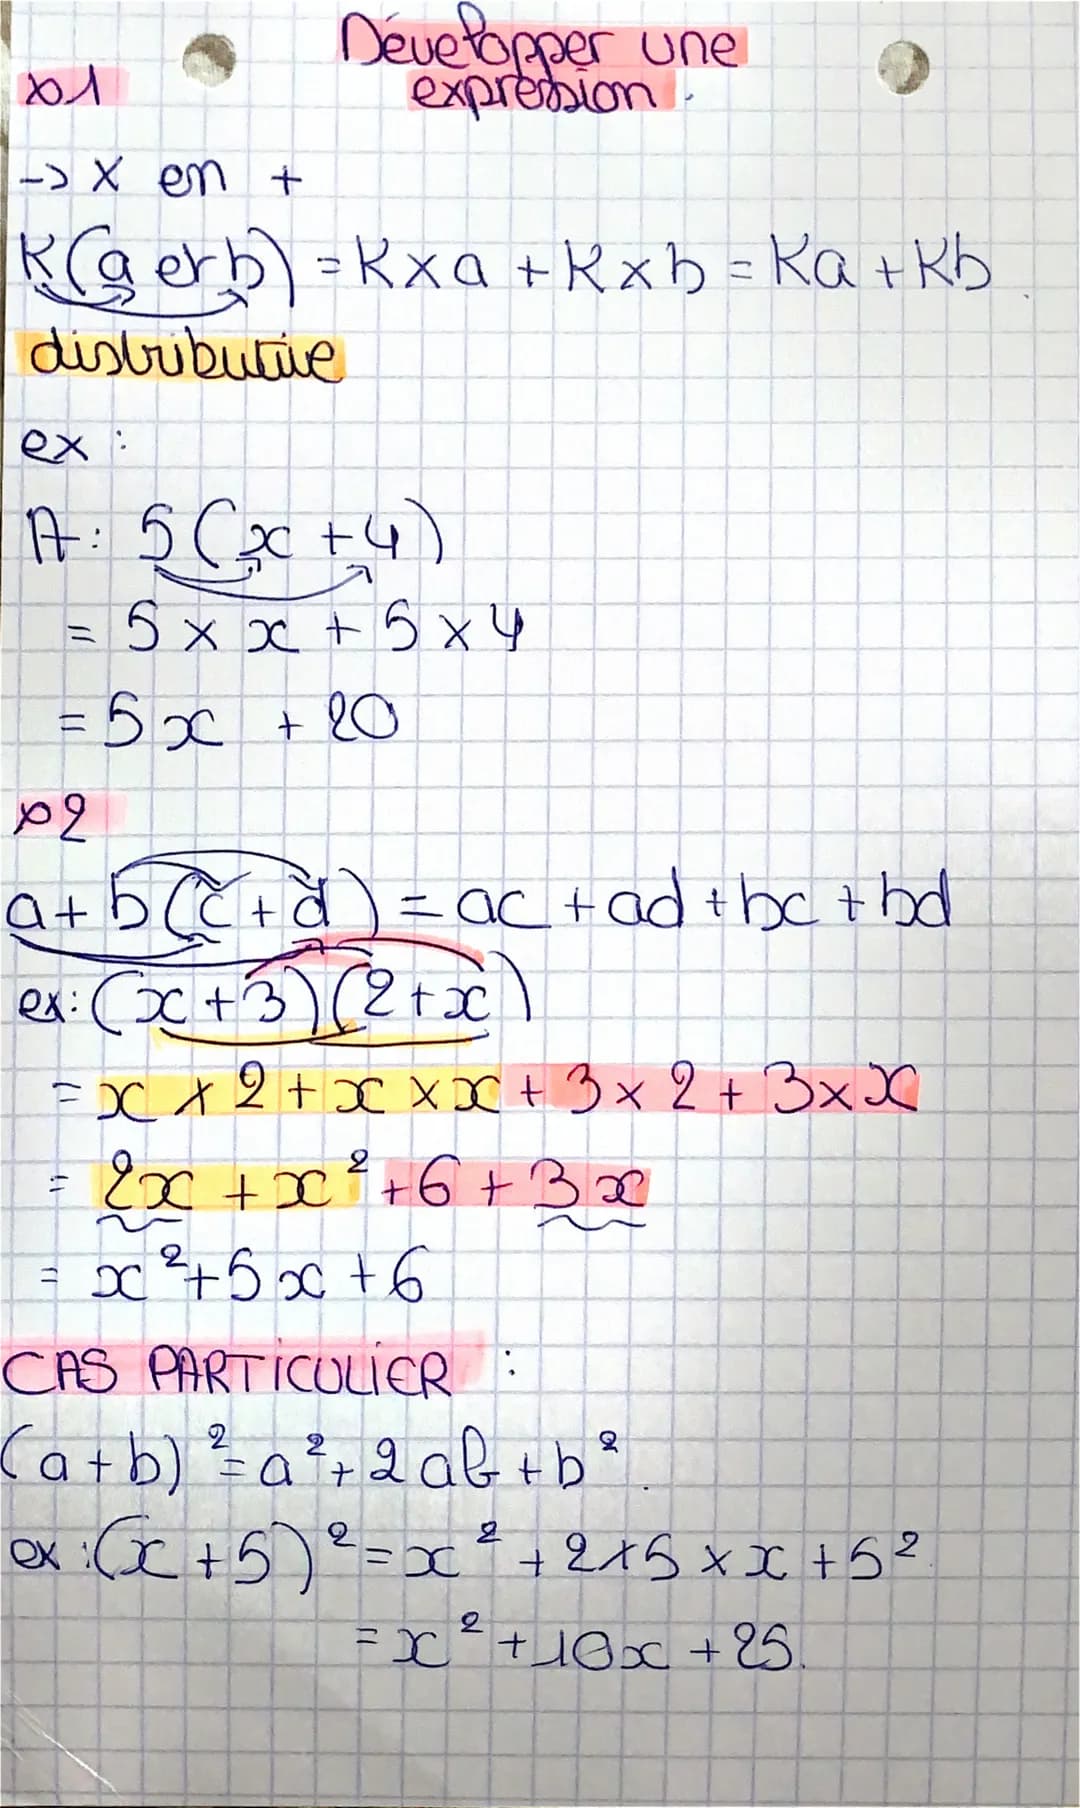 Développer une
expression.
x1
-> x en +
K(a et b) = K x a + K x b = Ka + Kb
distributive
ex :
A: 5(x + 4)
= 5 x x + 5 x 4
= 5x + 20
x2
a + b(c + d) = ac + ad + bc + bd
ex: (x + 3)(2 + x)
= x x 2 + x x x + 3 x 2 + 3 x x
= 2x + x² + 6 + 3x
= x² + 5x + 6
CAS PARTICULIER :
(a + b)² = a² + 2ab + b².
ex : (x + 5)² = x² + 2 x 5 x x + 5².
= x² + 10x + 25.